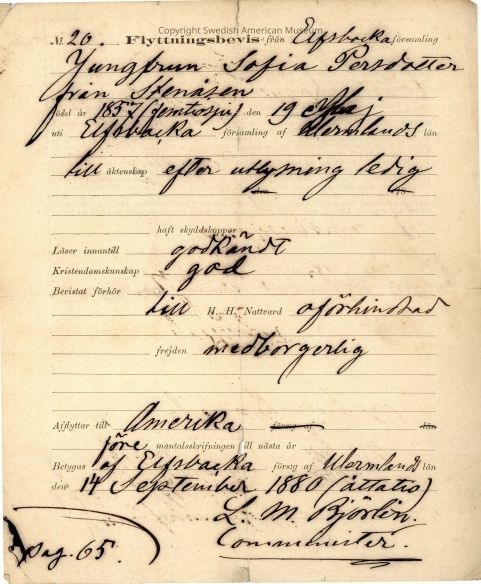 Copyright Swedish American Museum
№ 20. Flyttningsbevis från Elfsbacka församling
Jungfrun Sofia Persdotter
från Stenåsen
född år 1857 (femtiosju) den 19 Maj
uti Elfsbacka församling af Wermlands län
till äktenskap efter utlysning ledig
den
haft skyddskoppor
Läser innantill godkändt
Kristendomskunskap god
Bevistat förhör
till H. H. Nattvard oförhindrad
frejden medborgerlig
Afflyttar till Amerika förs:g af län
före mantalsskrifningen till nästa år
Betygas af Elfsbacka förs:g af Wermlands län
den 14 September 1880 (åttatio)
L. M. Björlin.
Comminister.
pag. 65.